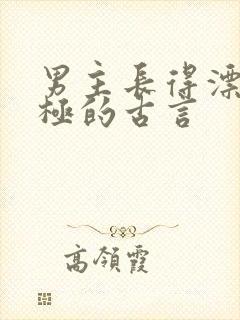 男主長得漂
極的古言
高領霞